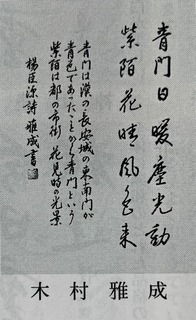 青門日暖塵光動
紫陌花晴風色来
青門は漢の長安城の東南門が
青色であったことから青門という
紫陌は都の市街 花見時の光景
楊巨源詩 雅成書
木村雅成